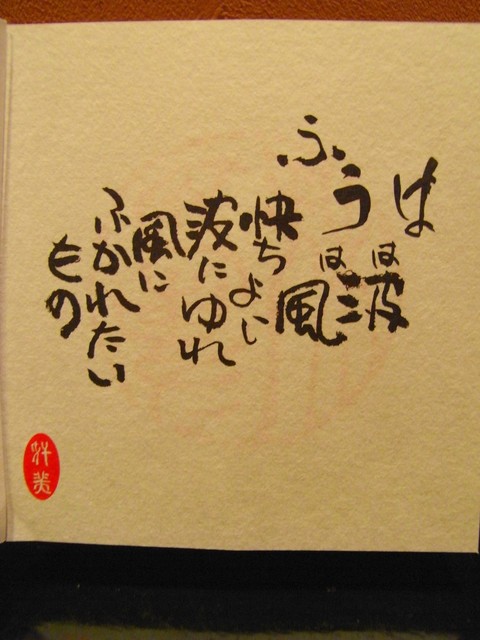 は は波
ふう は風
快ちよい
波にゆれ
風に
ふかれたい
もの